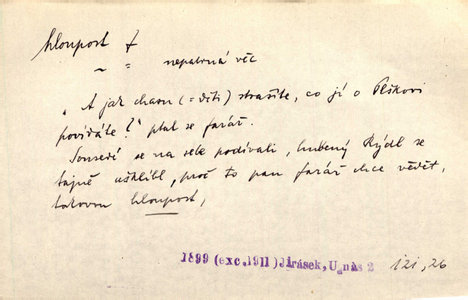 hloupost f
~ = nepatrná věc
„A jak chasu (= děti) strašíte, co jí o Plškovi
povídáte?" ptal se farář.
Sousedé se na sebe podívali, hubený Rýdl se
tajně ušklíbl, proč to pan farář chce vědět,
takovou hloupost,
1899 (exc. 1911) Jirásek, U nás 2 121, 26